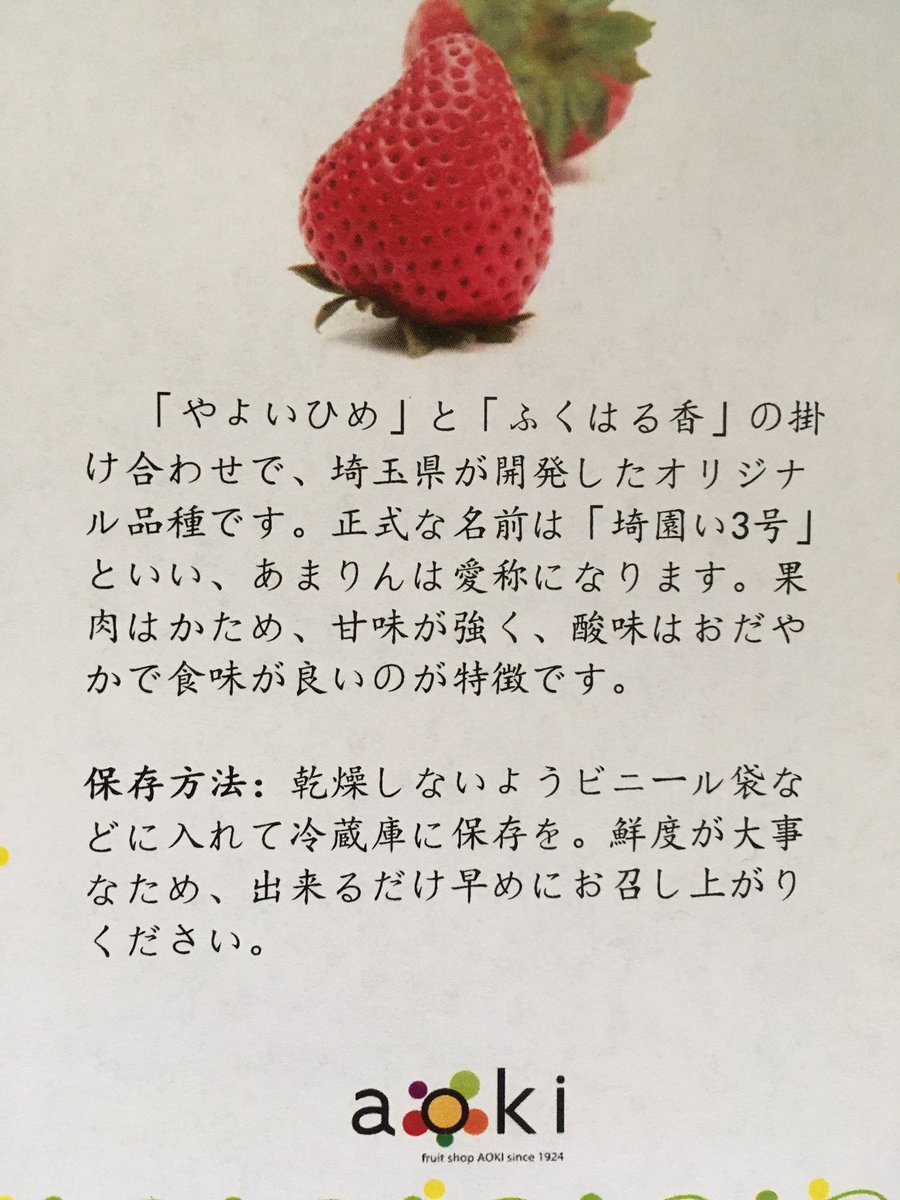 「やよいひめ」と「ふくはる香」の掛
け合わせで、埼玉県が開発したオリジナ
ル品種です。正式な名前は「埼園い3号」
といい、あまりんは愛称になります。果
肉はかため、甘味が強く、酸味はおだや
かで食味が良いのが特徴です。
保存方法：乾燥しないようビニール袋な
どに入れて冷蔵庫に保存を。鮮度が大事
なため、出来るだけ早めにお召し上がり
ください。
aoki
fruit shop AOKI since 1924